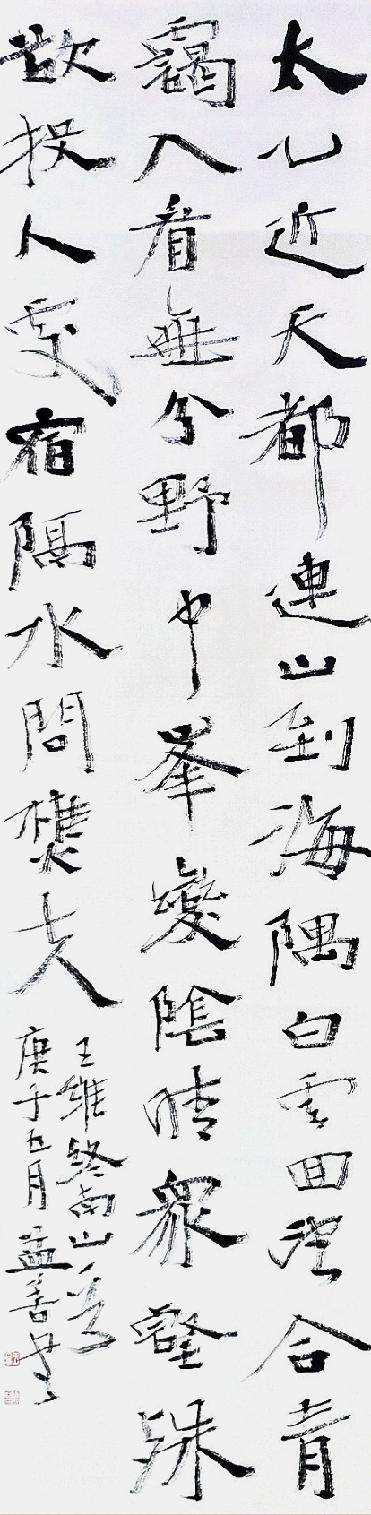 太乙近天都連山到海隅白雲回望合青
靄入看無分野中峯變陰晴眾壑殊
欲投人處宿隔水問樵夫
王維終南山一首
庚子五月益善書